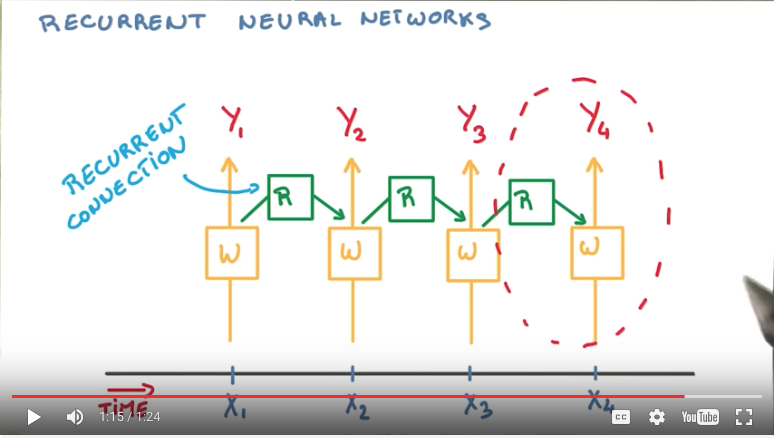 RECURRENT NEURAL NETWORKS
RECURRENT
CONNECTION
Y1 Y2 Y3 Y4
R R R
W W W W
TIME
X1 X2 X3 X4
1:15 / 1:24
CC
YouTube